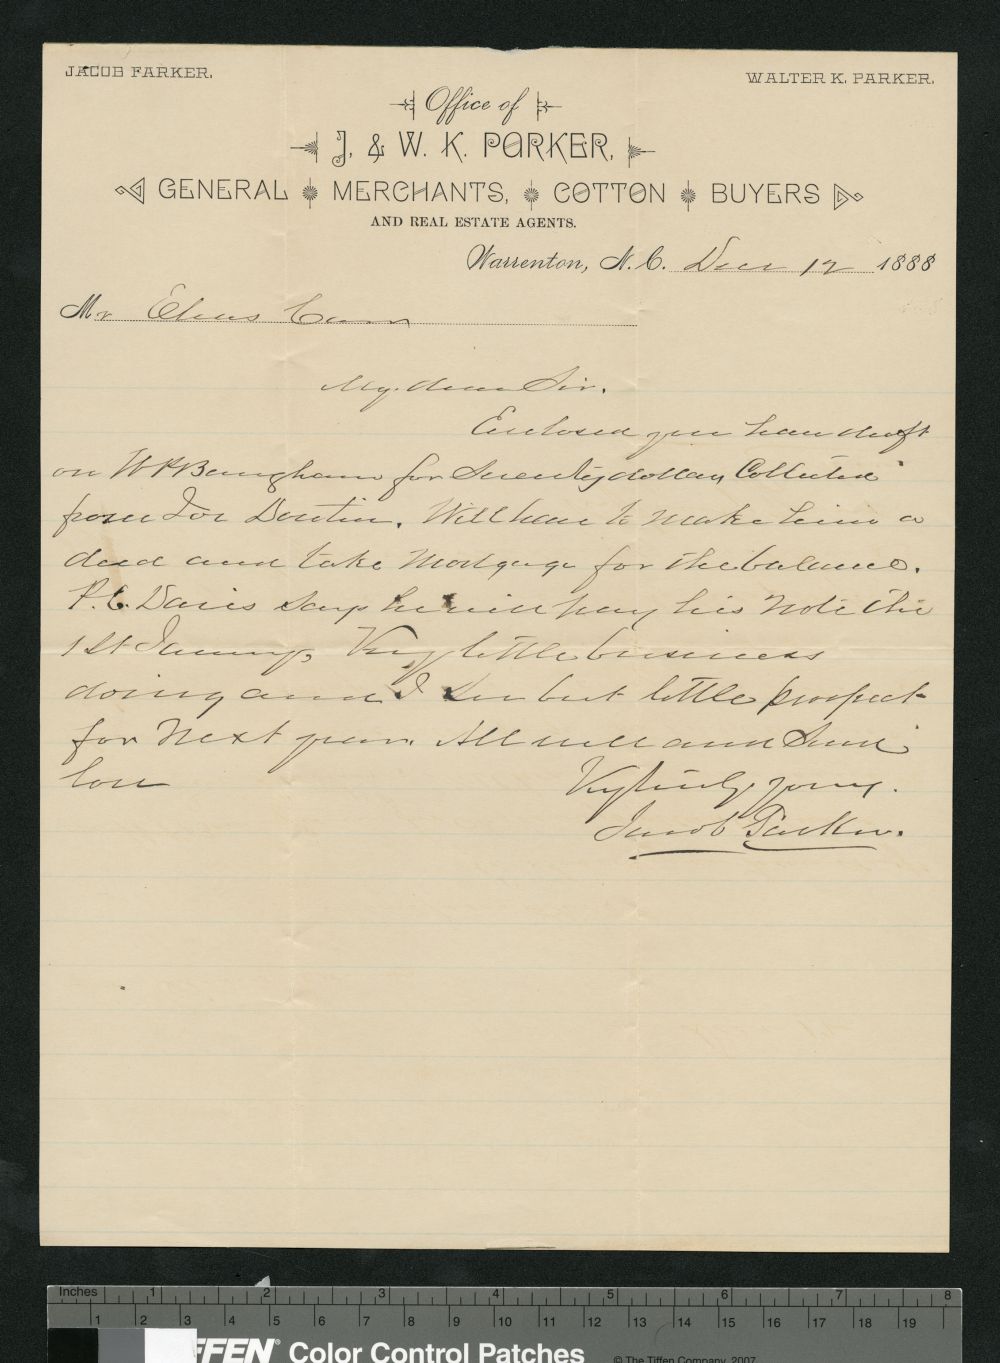 JACOB PARKER.
WALTER K. PARKER.
Office of
J. & W. K. PARKER,
GENERAL MERCHANTS, COTTON BUYERS
AND REAL ESTATE AGENTS.
Warrenton, N. C. Dec 12 1888
Mr Elias Carr
My dear Sir.
Enclosed you have draft
on W A Baugham for Seventy dollars Collected
from Joe. Will have to make him a
deed and take Mortgage for the balance.
P. C. Davis says he will pay his Note the
1st January. Very little business
doing and I see but little prospect
for Next year. All well and Send
love
Very truly yours.
Jacob Parker.
Inches 1 2 3 4 5 6 7 8
1 2 3 4 5 6 7 8 9 10 11 12 13 14 15 16 17 18 19
FFEN® Color Control Patches
© The Tiffen Company, 2007